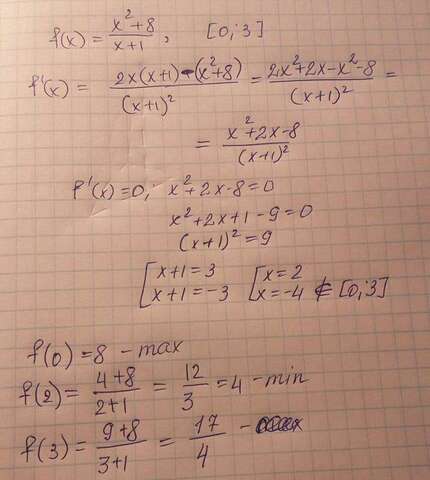 f(x) = x²+8 / x+1 , [0; 3]
f'(x) = 2x(x+1) - (x²+8) / (x+1)² = 2x²+2x-x²-8 / (x+1)² =
= x²+2x-8 / (x+1)²
f'(x)=0; x²+2x-8=0
x²+2x+1-9=0
(x+1)²=9
[ x+1=3 [ x=2
x+1=-3 x=-4 ∉ [0;3]
f(0)=8 - max
f(2)= 4+8 / 2+1 = 12 / 3 = 4 - min
f(3)= 9+8 / 3+1 = 17 / 4 -